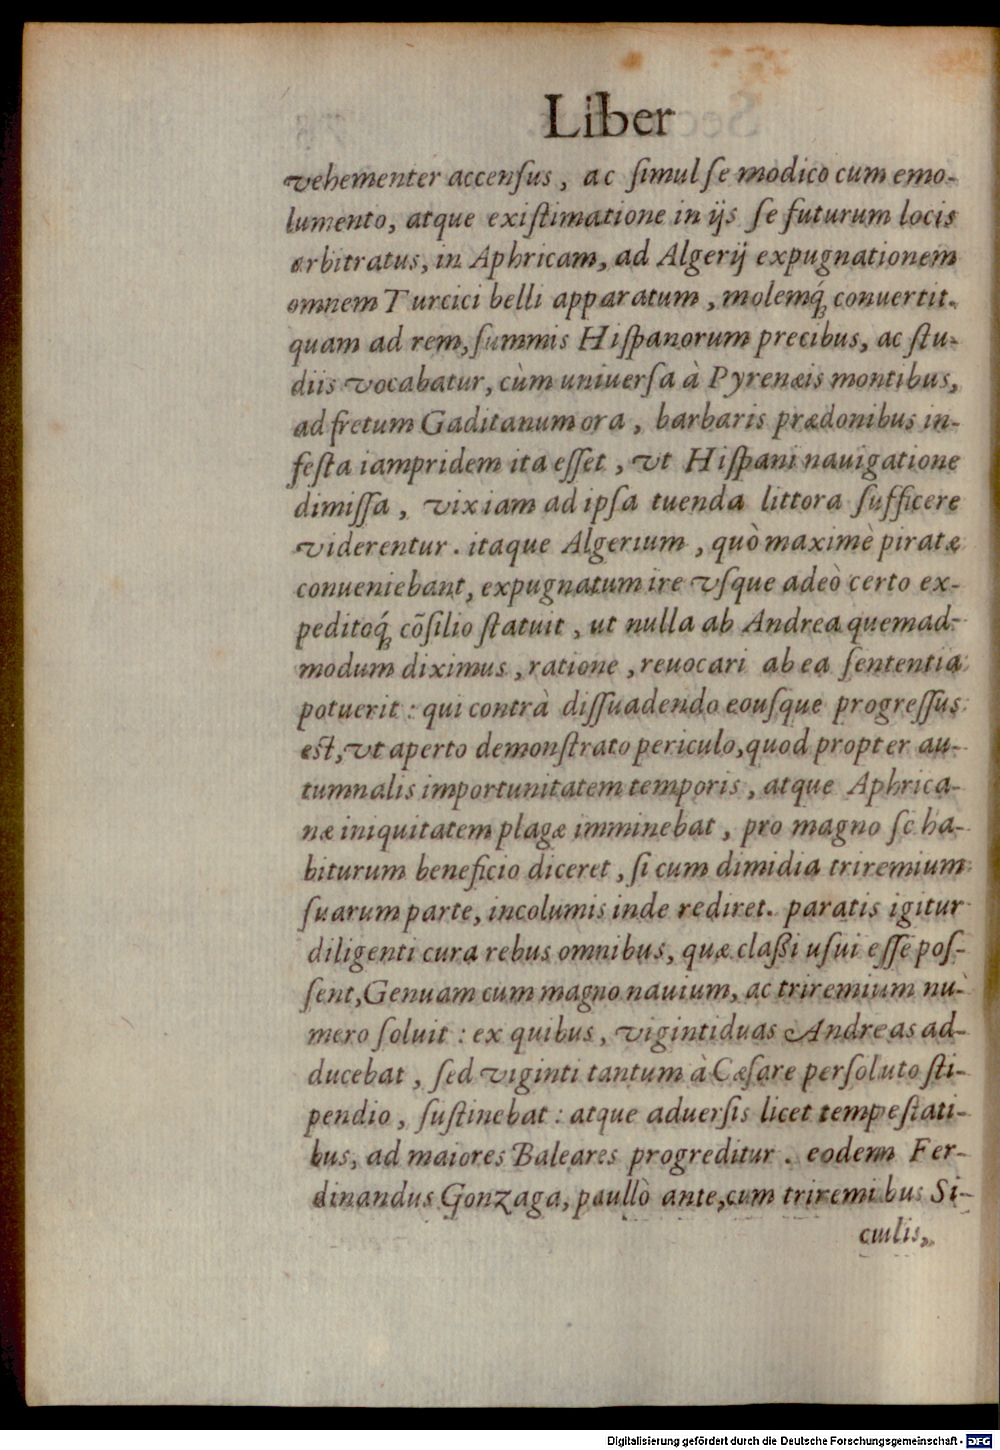 Liber
vehementer accenſus, ac ſimul ſe modico cum emo-
lumento, atque exiſtimatione in ijs ſe futurum locis
arbitratus, in Aphricam, ad Algerij expugnationem
omnem Turcici belli apparatum, molemq́; conuertit.
quam ad rem, ſummis Hiſpanorum precibus, ac ſtu-
diis vocabatur, cùm uniuerſa à Pyrenæis montibus,
ad fretum Gaditanum ora, barbaris prædonibus in-
feſta iampridem ita eſſet, vt Hiſpani nauigatione
dimiſſa, vix iam ad ipſa tuenda littora ſufficere
viderentur. itaque Algerium, quò maximè piratæ
conueniebant, expugnatum ire vſque adeò certo ex-
peditoq́; cõſilio ſtatuit, ut nulla ab Andrea quemad-
modum diximus, ratione, reuocari ab ea ſententia
potuerit: qui contrà diſſuadendo eouſque progreſſus
eſt, vt aperto demonſtrato periculo, quod propter au-
tumnalis importunitatem temporis, atque Aphrica-
næ iniquitatem plagæ imminebat, pro magno ſe ha-
biturum beneficio diceret, ſi cum dimidia triremium
ſuarum parte, incolumis inde rediret. paratis igitur
diligenti cura rebus omnibus, quæ claßi uſui eſſe poſ-
ſent, Genuam cum magno nauium, ac triremium nu-
mero ſoluit: ex quibus, vigintiduas Andreas ad-
ducebat, ſed viginti tantum à Cæſare perſoluto ſti-
pendio, ſuſtinebat: atque aduerſis licet tempeſtati-
bus, ad maiores Baleares progreditur. eodem Fer-
dinandus Gonzaga, paullò ante, cum triremibus Si-
culis,
Digitalisierung gefördert durch die Deutsche Forschungsgemeinschaft - DFG